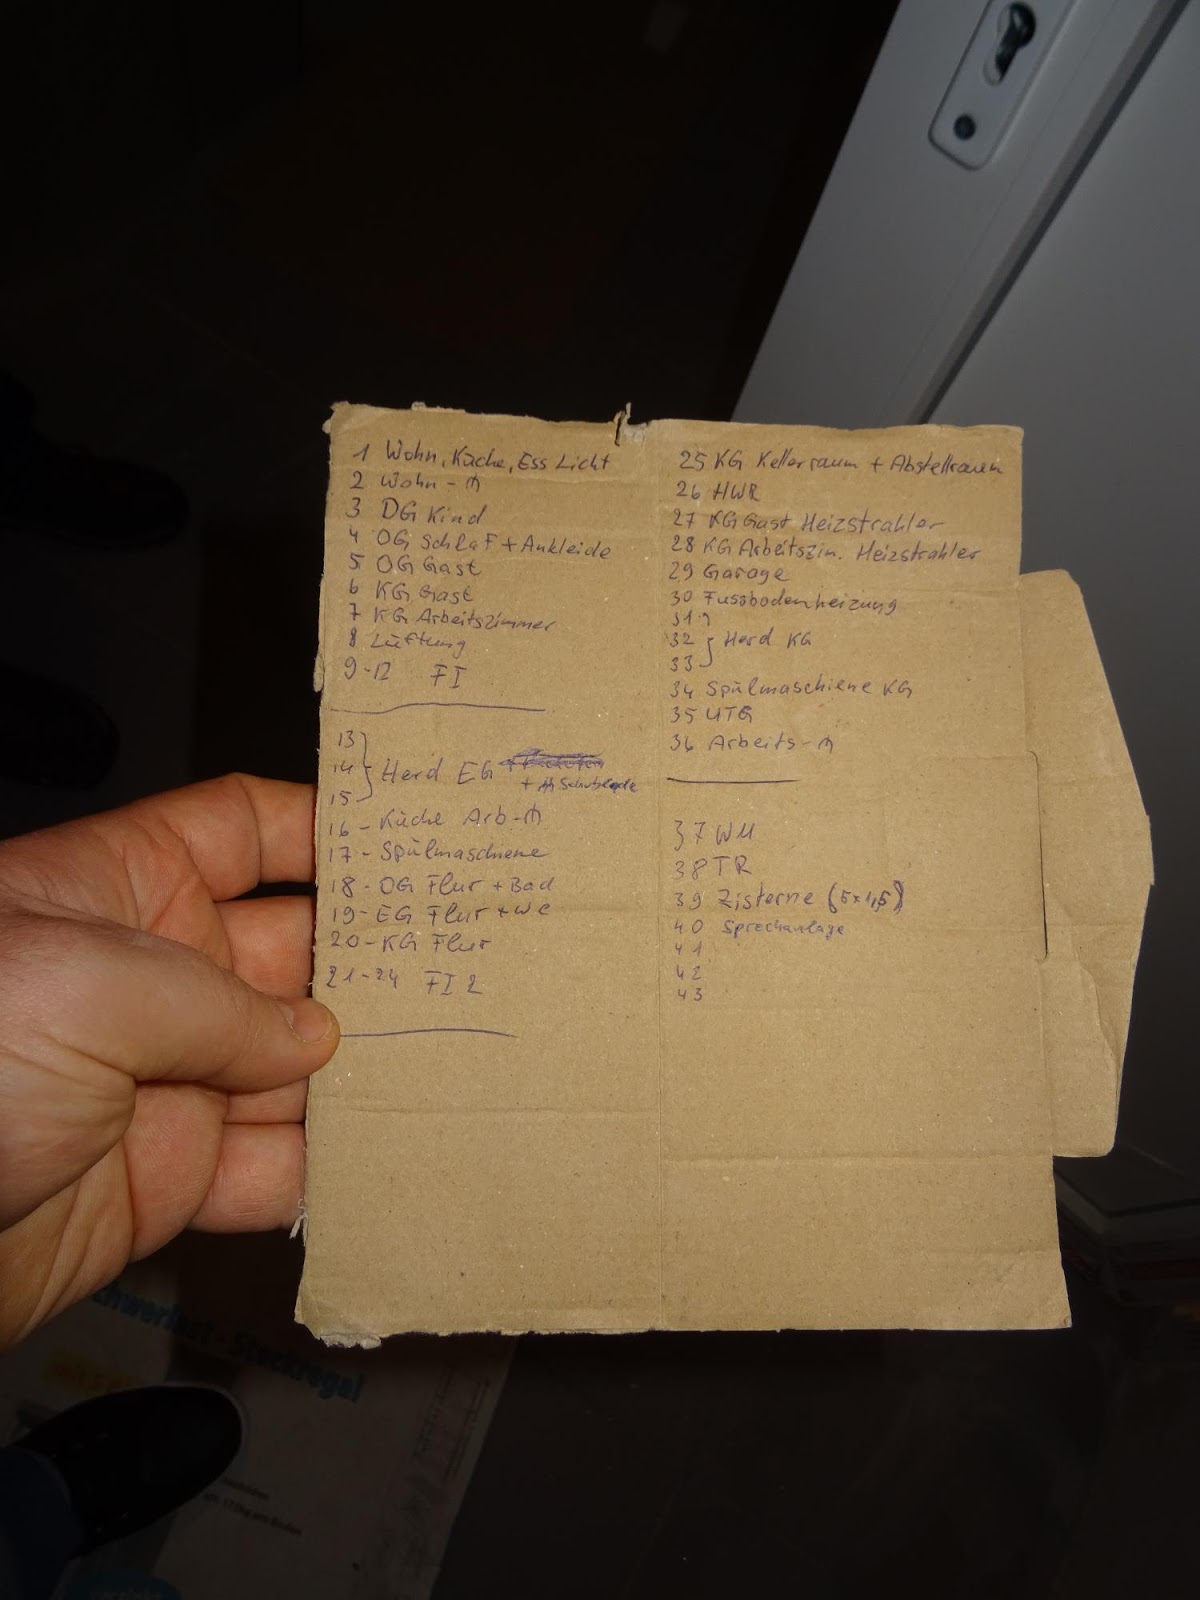 1 Wohn, Küche, Ess Licht
2 Wohn-
3 DG Kind
4 OG Schlaf + Ankleide
5 OG Gast
6 KG Gast
7 KG Arbeitszimmer
8 Lüftung
9-12 FI
13
14 Herd EG
+ Schublade
15
16 - Küche Arb-
17 - Spülmaschiene
18 - OG Flur + Bad
19 - EG Flur + WC
20 - KG Flur
21-24 FI 2
25 KG Kellerraum + Abstellraum
26 HWR
27 KG Gast Heizstrahler
28 KG Arbeitszim. Heizstrahler
29 Garage
30 Fussbodenheizung
31
32 Herd KG
33
34 Spülmaschiene KG
35 UTG
36 Arbeits-
37 WM
38 TR
39 Zisterne (5x1,5)
40 Sprechanlage
41
42
43
Schwerlast-Steckregal